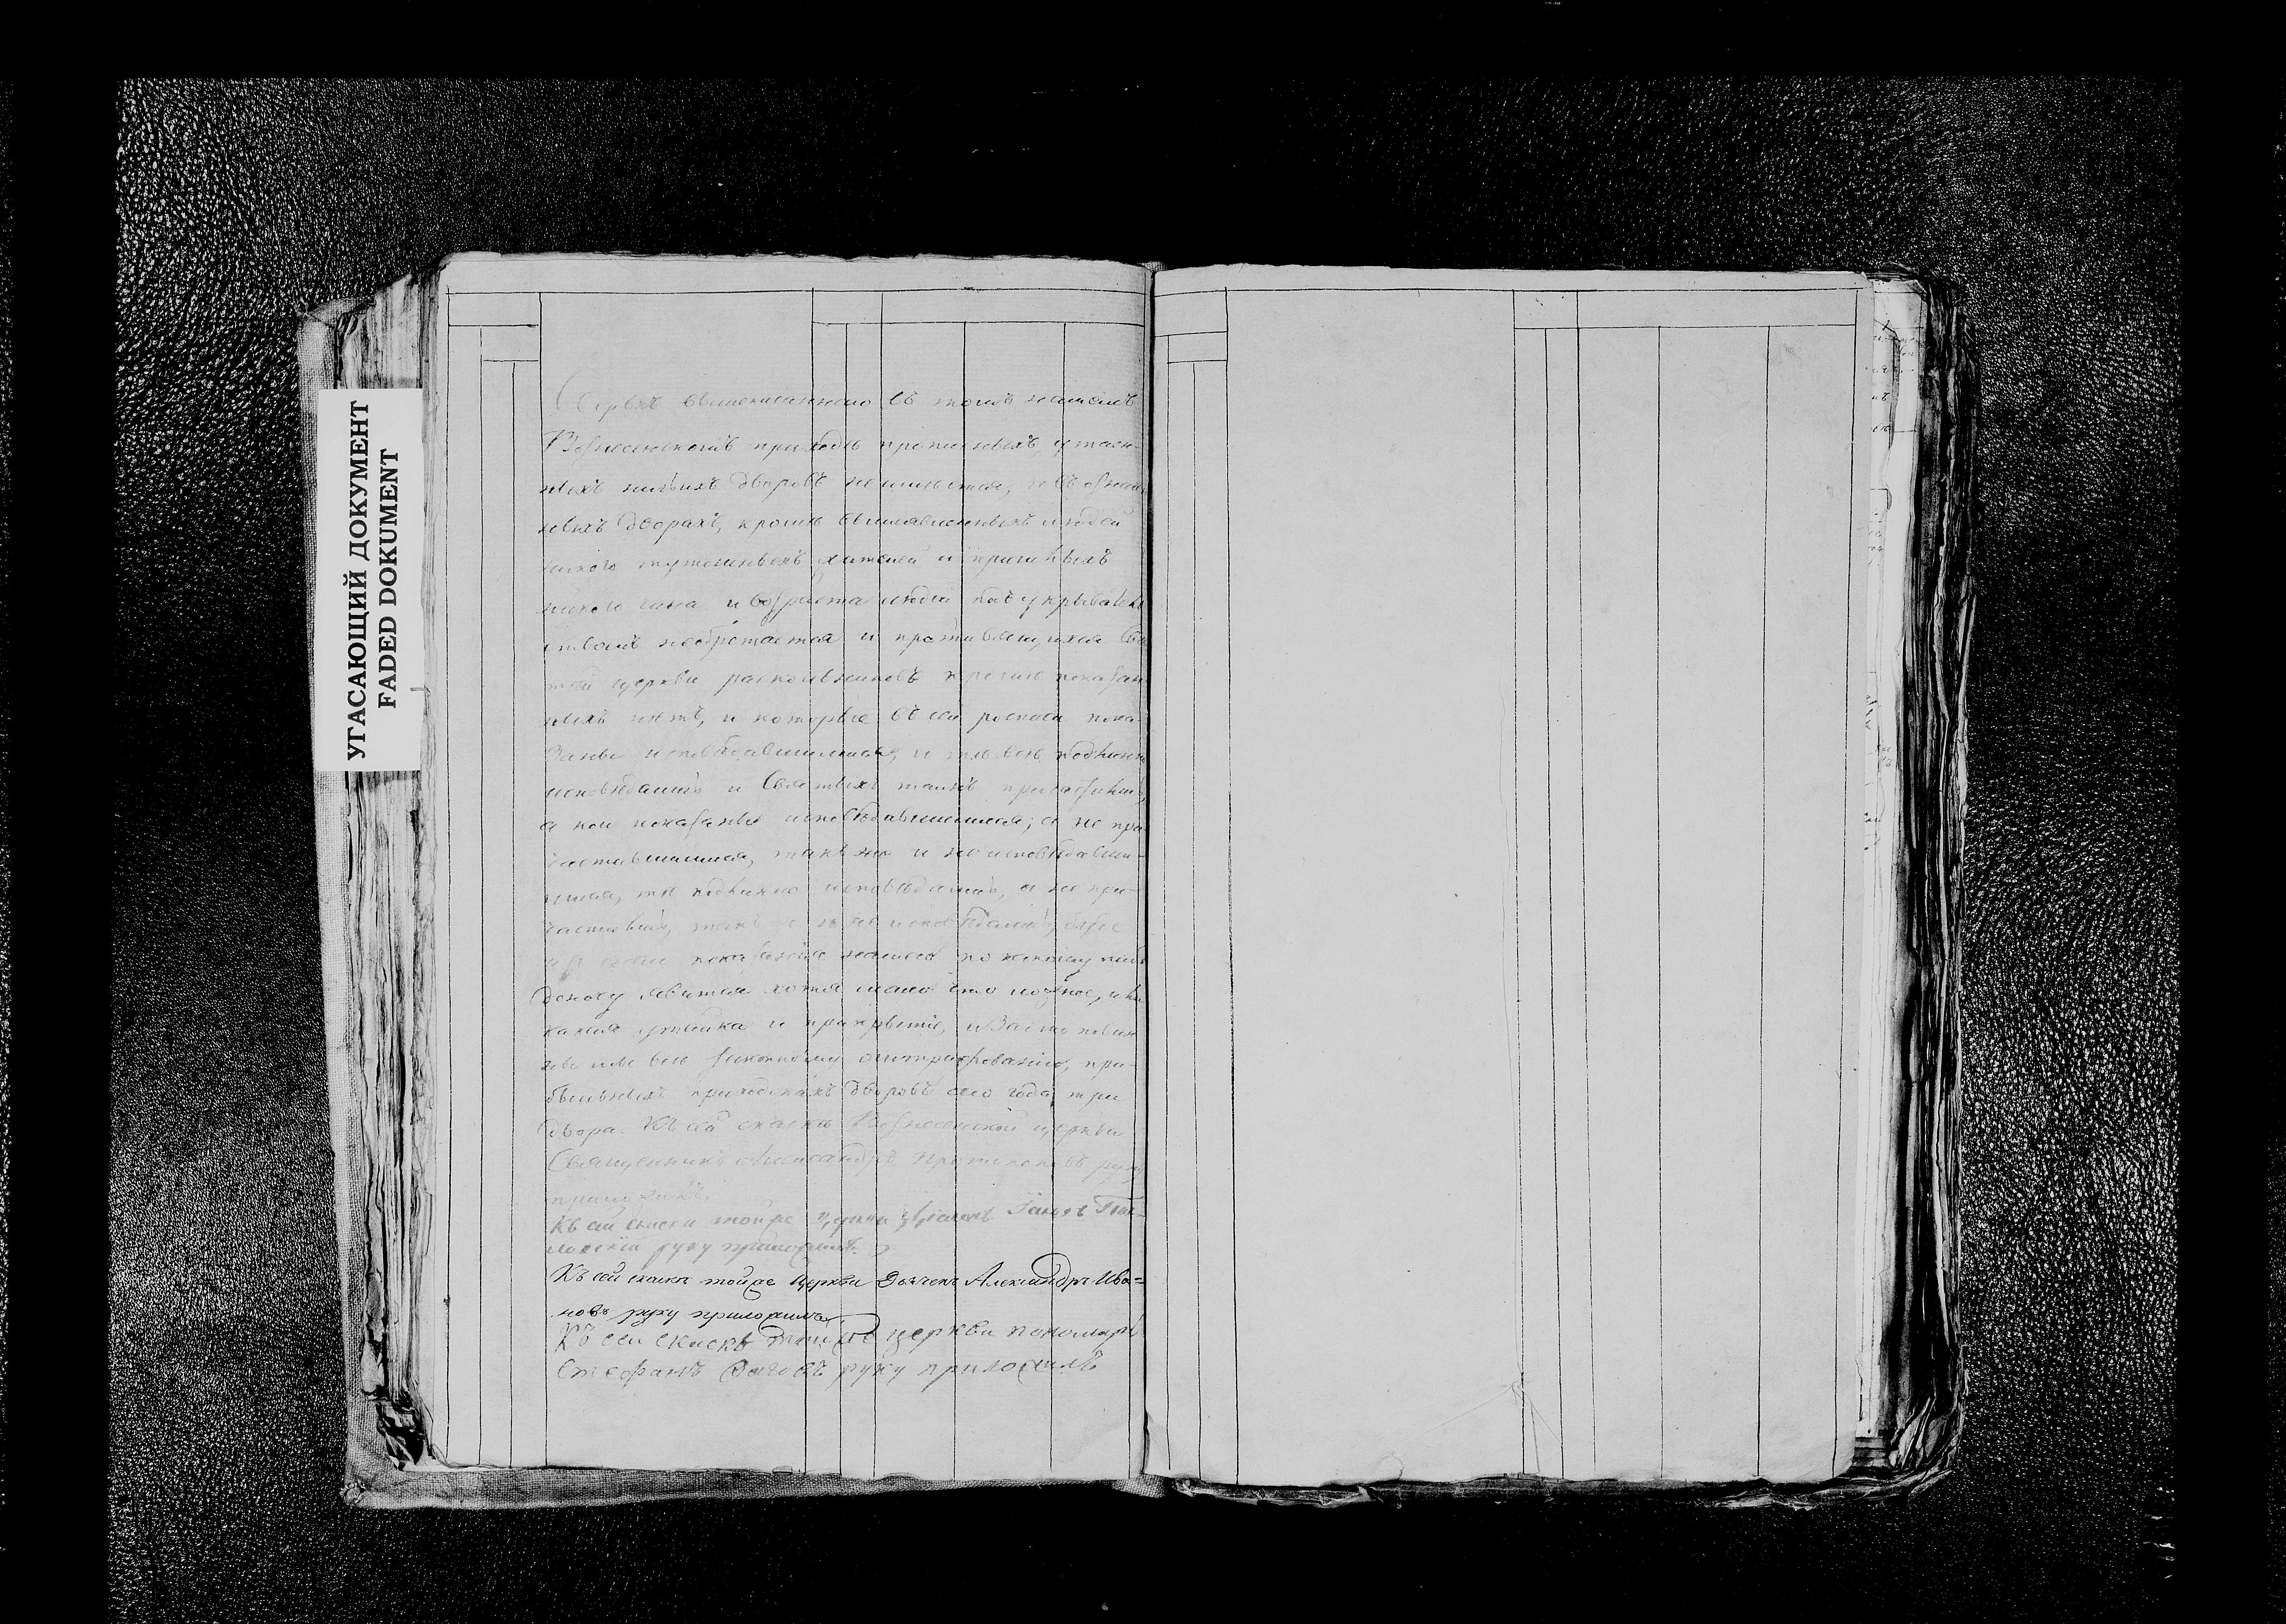 УГАСАЮЩИЙ ДОКУМЕНТ
FADED DOKUMENT
Сверхъ вышеписаннаго въ томъ нашемъ
Вознесенскомъ приходѣ прописныхъ, утаен-
ныхъ ничьихъ дворовъ не имѣется, и въ означен
ныхъ дворахъ, кромѣ вышеявленныхъ людей
никого тутошныхъ жителей и пришлыхъ
никого чина и возраста людей подъ укрыватель
ствомъ необрѣтается и противящихся свя
той церкви раскольниковъ кромѣ показан
ныхъ нѣтъ, и которые въ сей росписи пока
заны исповѣдавшимися, и тѣ всѣ подлинно
исповѣдались и Святыхъ таинъ причастились,
а кои показаны исповѣдавшимися, а не при
частившимися, такъ же и не исповѣдавши-
мися, тѣ подлинно исповѣдались, а не при-
частились, такъ же и не исповѣдались, буде
показанія нашего по какому либо
доносу явится хотя мало что ложное, или
какая утайка и прикрытіе, и за то повин
ны мы всѣ законному оштрафованію, при-
быльныхъ приходскихъ дворовъ сего года три
двора. Къ сей сказкѣ Вознесенской церкви
Священникъ Александръ Протопоповъ руку
приложилъ.
Къ сей скаски тойже церкви
руку приложилъ.
Къ сей скаски тойже Церкви Дьячекъ Александръ Ива=
новъ руку приложилъ
Къ сей скаскѣ тойже церкви пономарь
Стефанъ руку приложилъ